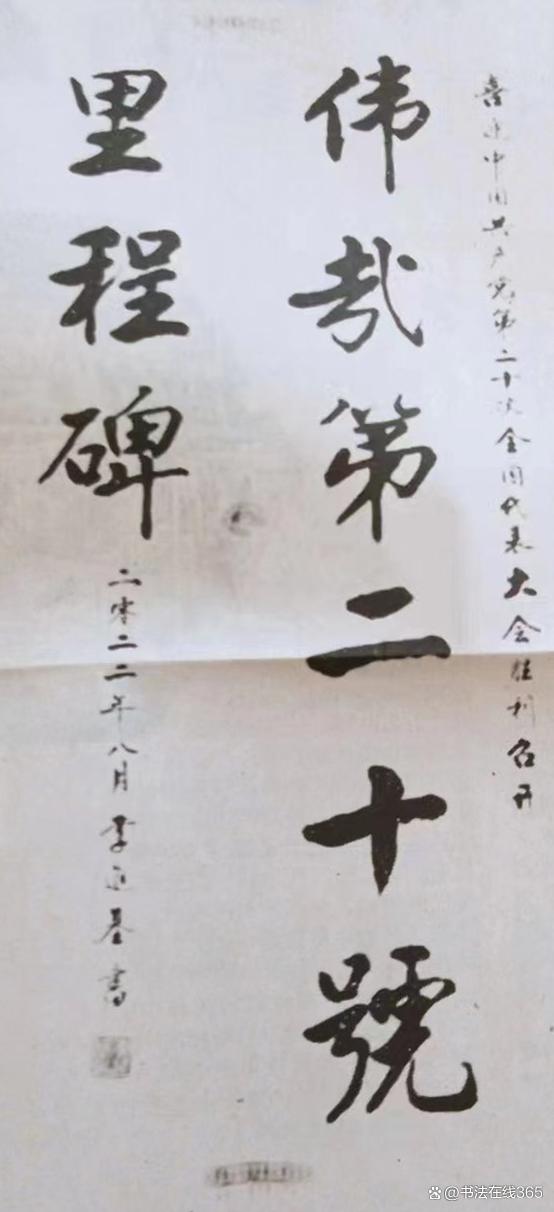 喜迎中国共产党第二十次全国代表大会胜利召开
伟哉第二十號
里程碑
二零二二年八月李迎基書
@书法在线365